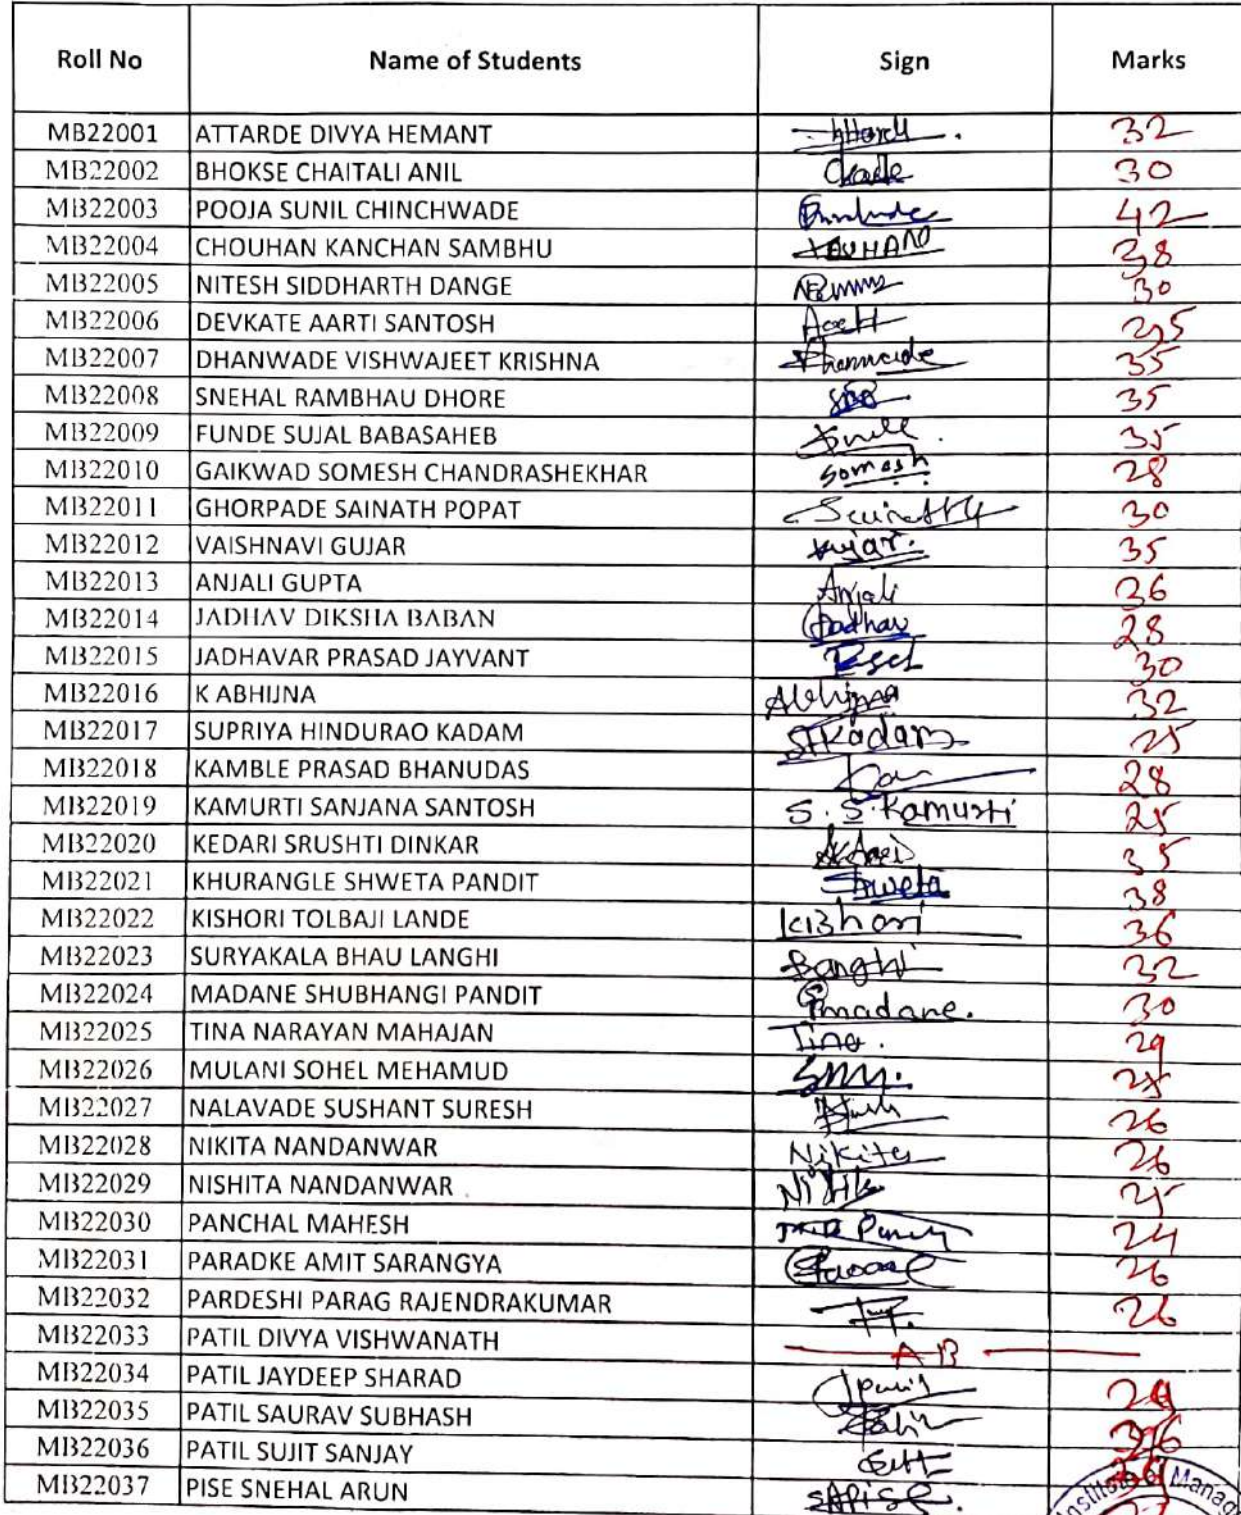 Roll No Name of Students Sign Marks
MB22001 ATTARDE DIVYA HEMANT 32
MB22002 BHOKSE CHAITALI ANIL 30
MB22003 POOJA SUNIL CHINCHWADE 42
MB22004 CHOUHAN KANCHAN SAMBHU 38
MB22005 NITESH SIDDHARTH DANGE 30
MB22006 DEVKATE AARTI SANTOSH
MB22007 DHANWADE VISHWAJEET KRISHNA 35
MB22008 SNEHAL RAMBHAU DHORE 35
MB22009 FUNDE SUJAL BABASAHEB 35
MB22010 GAIKWAD SOMESH CHANDRASHEKHAR Somesh 28
MB22011 GHORPADE SAINATH POPAT 30
MB22012 VAISHNAVI GUJAR 35
MB22013 ANJALI GUPTA Anjali 36
MB22014 JADHAV DIKSHA BABAN Jadhav 28
MB22015 JADHAVAR PRASAD JAYVANT 30
MB22016 K ABHIJNA Abhijna 32
MB22017 SUPRIYA HINDURAO KADAM SHKadam 25
MB22018 KAMBLE PRASAD BHANUDAS 28
MB22019 KAMURTI SANJANA SANTOSH S.S.Kamurti 25
MB22020 KEDARI SRUSHTI DINKAR 35
MB22021 KHURANGLE SHWETA PANDIT Shweta 38
MB22022 KISHORI TOLBAJI LANDE Kishori 36
MB22023 SURYAKALA BHAU LANGHI 32
MB22024 MADANE SHUBHANGI PANDIT Smadane. 30
MB22025 TINA NARAYAN MAHAJAN Tina. 29
MB22026 MULANI SOHEL MEHAMUD
MB22027 NALAVADE SUSHANT SURESH 26
MB22028 NIKITA NANDANWAR Nikita 26
MB22029 NISHITA NANDANWAR 25
MB22030 PANCHAL MAHESH 24
MB22031 PARADKE AMIT SARANGYA 26
MB22032 PARDESHI PARAG RAJENDRAKUMAR 26
MB22033 PATIL DIVYA VISHWANATH AB
MB22034 PATIL JAYDEEP SHARAD
MB22035 PATIL SAURAV SUBHASH
MB22036 PATIL SUJIT SANJAY
MB22037 PISE SNEHAL ARUN SAPise.